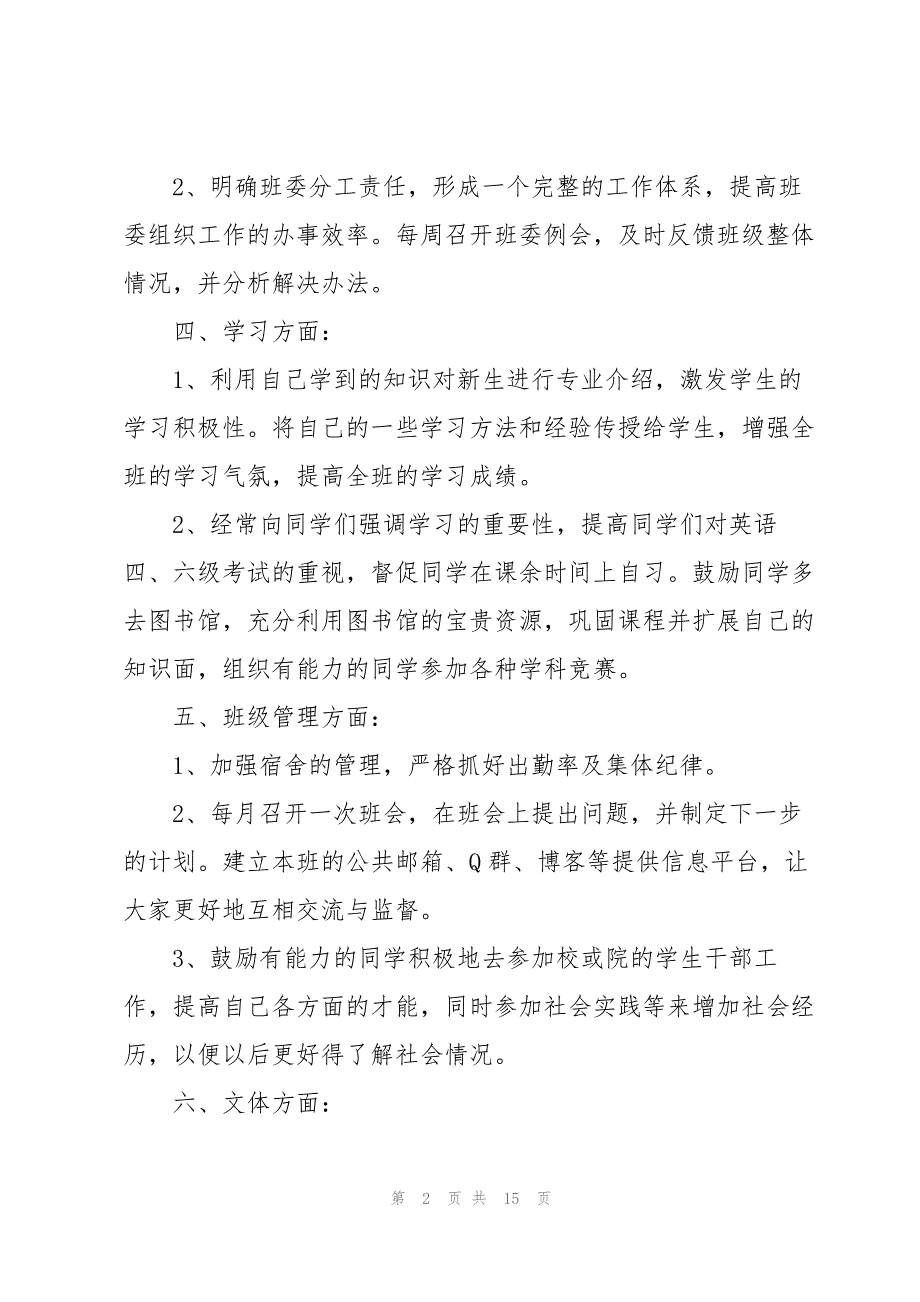 2、明确班委分工责任，形成一个完整的工作体系，提高班
委组织工作的办事效率。每周召开班委例会，及时反馈班级整体
情况，并分析解决办法。
四、学习方面：
1、利用自己学到的知识对新生进行专业介绍，激发学生的
学习积极性。将自己的一些学习方法和经验传授给学生，增强全
班的学习气氛，提高全班的学习成绩。
2、经常向同学们强调学习的重要性，提高同学们对英语
四、六级考试的重视，督促同学在课余时间上自习。鼓励同学多
去图书馆，充分利用图书馆的宝贵资源，巩固课程并扩展自己的
知识面，组织有能力的同学参加各种学科竞赛。
五、班级管理方面：
1、加强宿舍的管理，严格抓好出勤率及集体纪律。
2、每月召开一次班会，在班会上提出问题，并制定下一步
的计划。建立本班的公共邮箱、Q 群、博客等提供信息平台，让
大家更好地互相交流与监督。
3、鼓励有能力的同学积极地去参加校或院的学生干部工
作，提高自己各方面的才能，同时参加社会实践等来增加社会经
历，以便以后更好得了解社会情况。
六、文体方面：
第 2 页 共 15 页